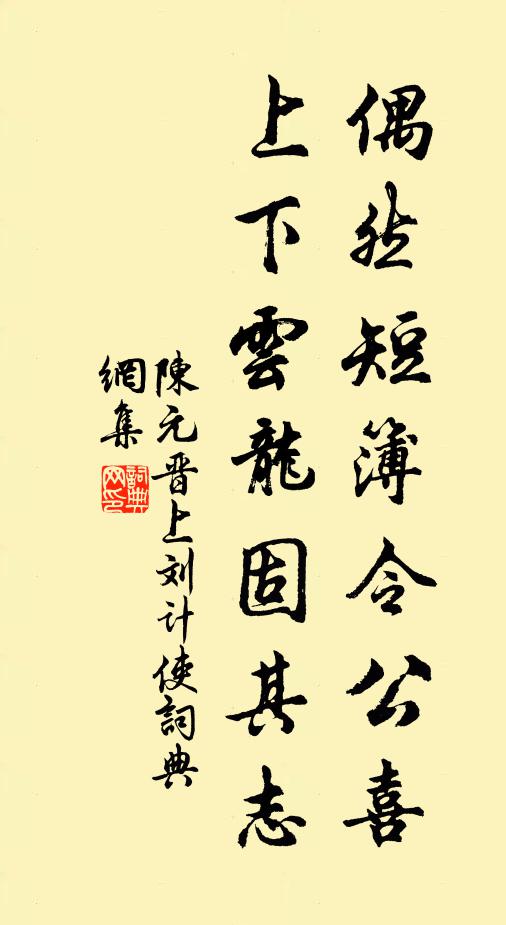 偶然短簿令公喜
上下雲龍固其志
陳元晋上刘计使詞典
網集
詞典
网印